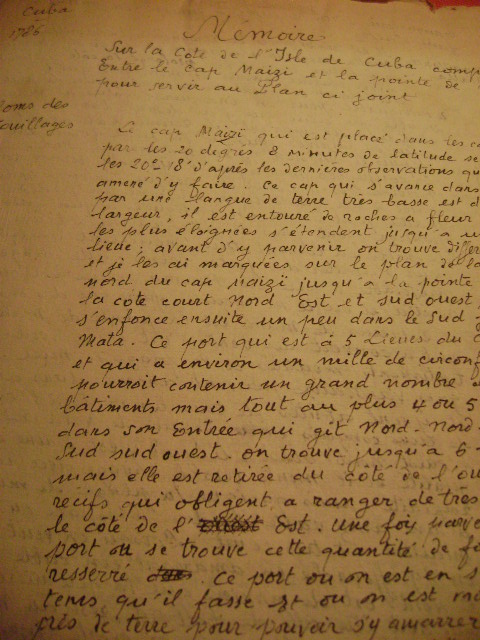 Cuba
1786
Mémoire
Sur la Côte de l'Isle de Cuba comp
Entre le cap Maizi et la pointe de
pour servir au Plan ci joint
noms des
mouillages
Le cap Maizi qui est placé dans les ca
par les 20 degrés 8 minutes de latitude se
les 20d 18' d'après les dernières observations qu
amené d'y faire. Ce cap qui s'avance dans
par une langue de terre très basse est d
largeur, il est entouré de roches a fleur
les plus éloignées s'étendent jusqu'à u
lieue; avant d'y parvenir on trouve differ
et je les ai marquées sur le plan de la
nord du cap Maizi jusqu'a la pointe
la côte court Nord Est et sud ouest
s'enfonce ensuite un peu dans le Sud
Mata. Ce port qui est à 5 Lieues du C
et qui a environ un mille de circonf
pourroit contenir un grand nombre d
bâtiments mais tout au plus 4 ou 5
dans son Entrée qui git Nord-Nord-
Sud sud ouest. on trouve jusqu'a 6
mais elle est retirée du côté de l'ou
recifs qui obligent a ranger de très
le côté de l' Est. Une fois parve
port ou se trouve cette quantité de f
resserré. Ce port ou on est en s
tems qu'il fasse et ou on est m
près de terre pour pouvoir s'y amarrer